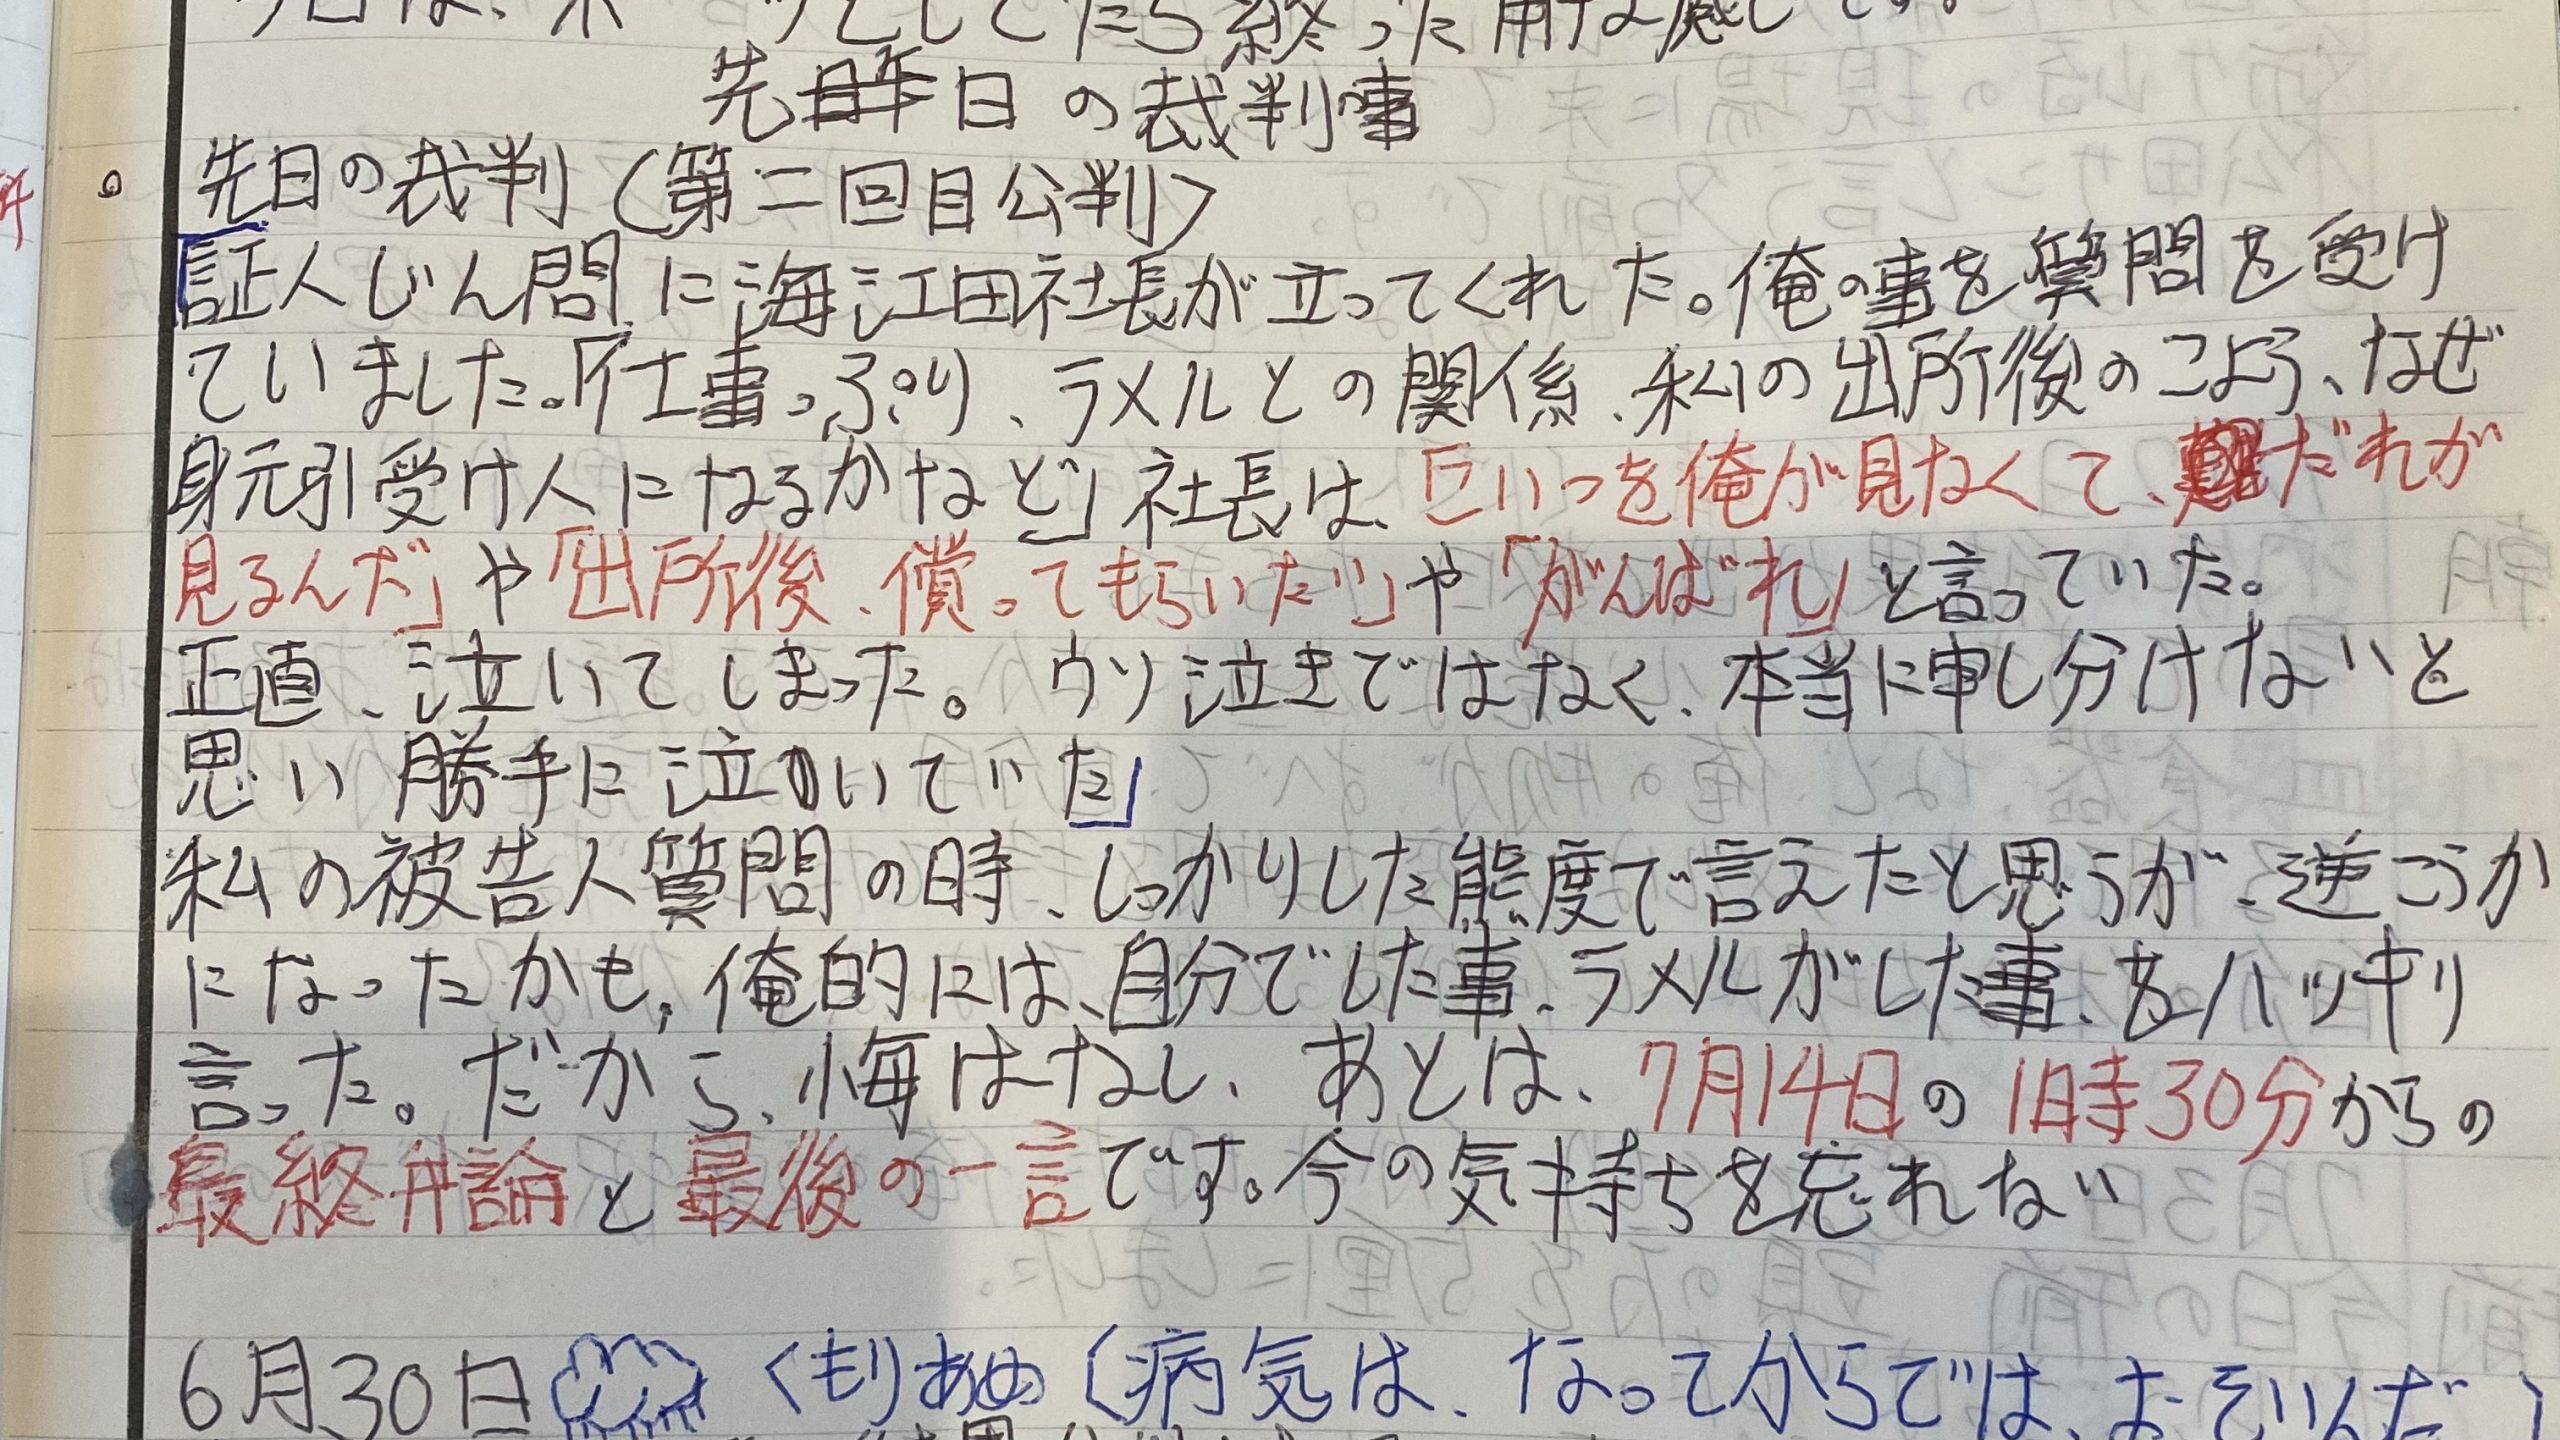 たら終った
先昨日の裁判事
先日の裁判(第二回目公判)
「証人じん問に海江田社長が立ってくれた。俺の事を質問を受け
ていました。「仕事っぷり、ラメルとの関係、私の出所後のこよう、なぜ
身元引受け人になるかなど」社長は、「こいつを俺が見なくて、だれが
見るんだ」や「出所後、償ってもらいたい」や「がんばれ」と言っていた。
正直、泣いてしまった。ウソ泣きではなく、本当に申し分けないと
思い勝手に泣いていた」
私の被告人質問の時、しっかりした態度で言えたと思うが、逆こうか
になったかも、俺的には、自分でした事、ラメルがした事、をハッキリ
言った。だから、悔はなし、あとは、7月14日の1時30分からの
最終弁論と最後の一言です。今の気持ちを忘れない
6月30日 くもりあめ(病気は、なってからでは、おそいんだ)